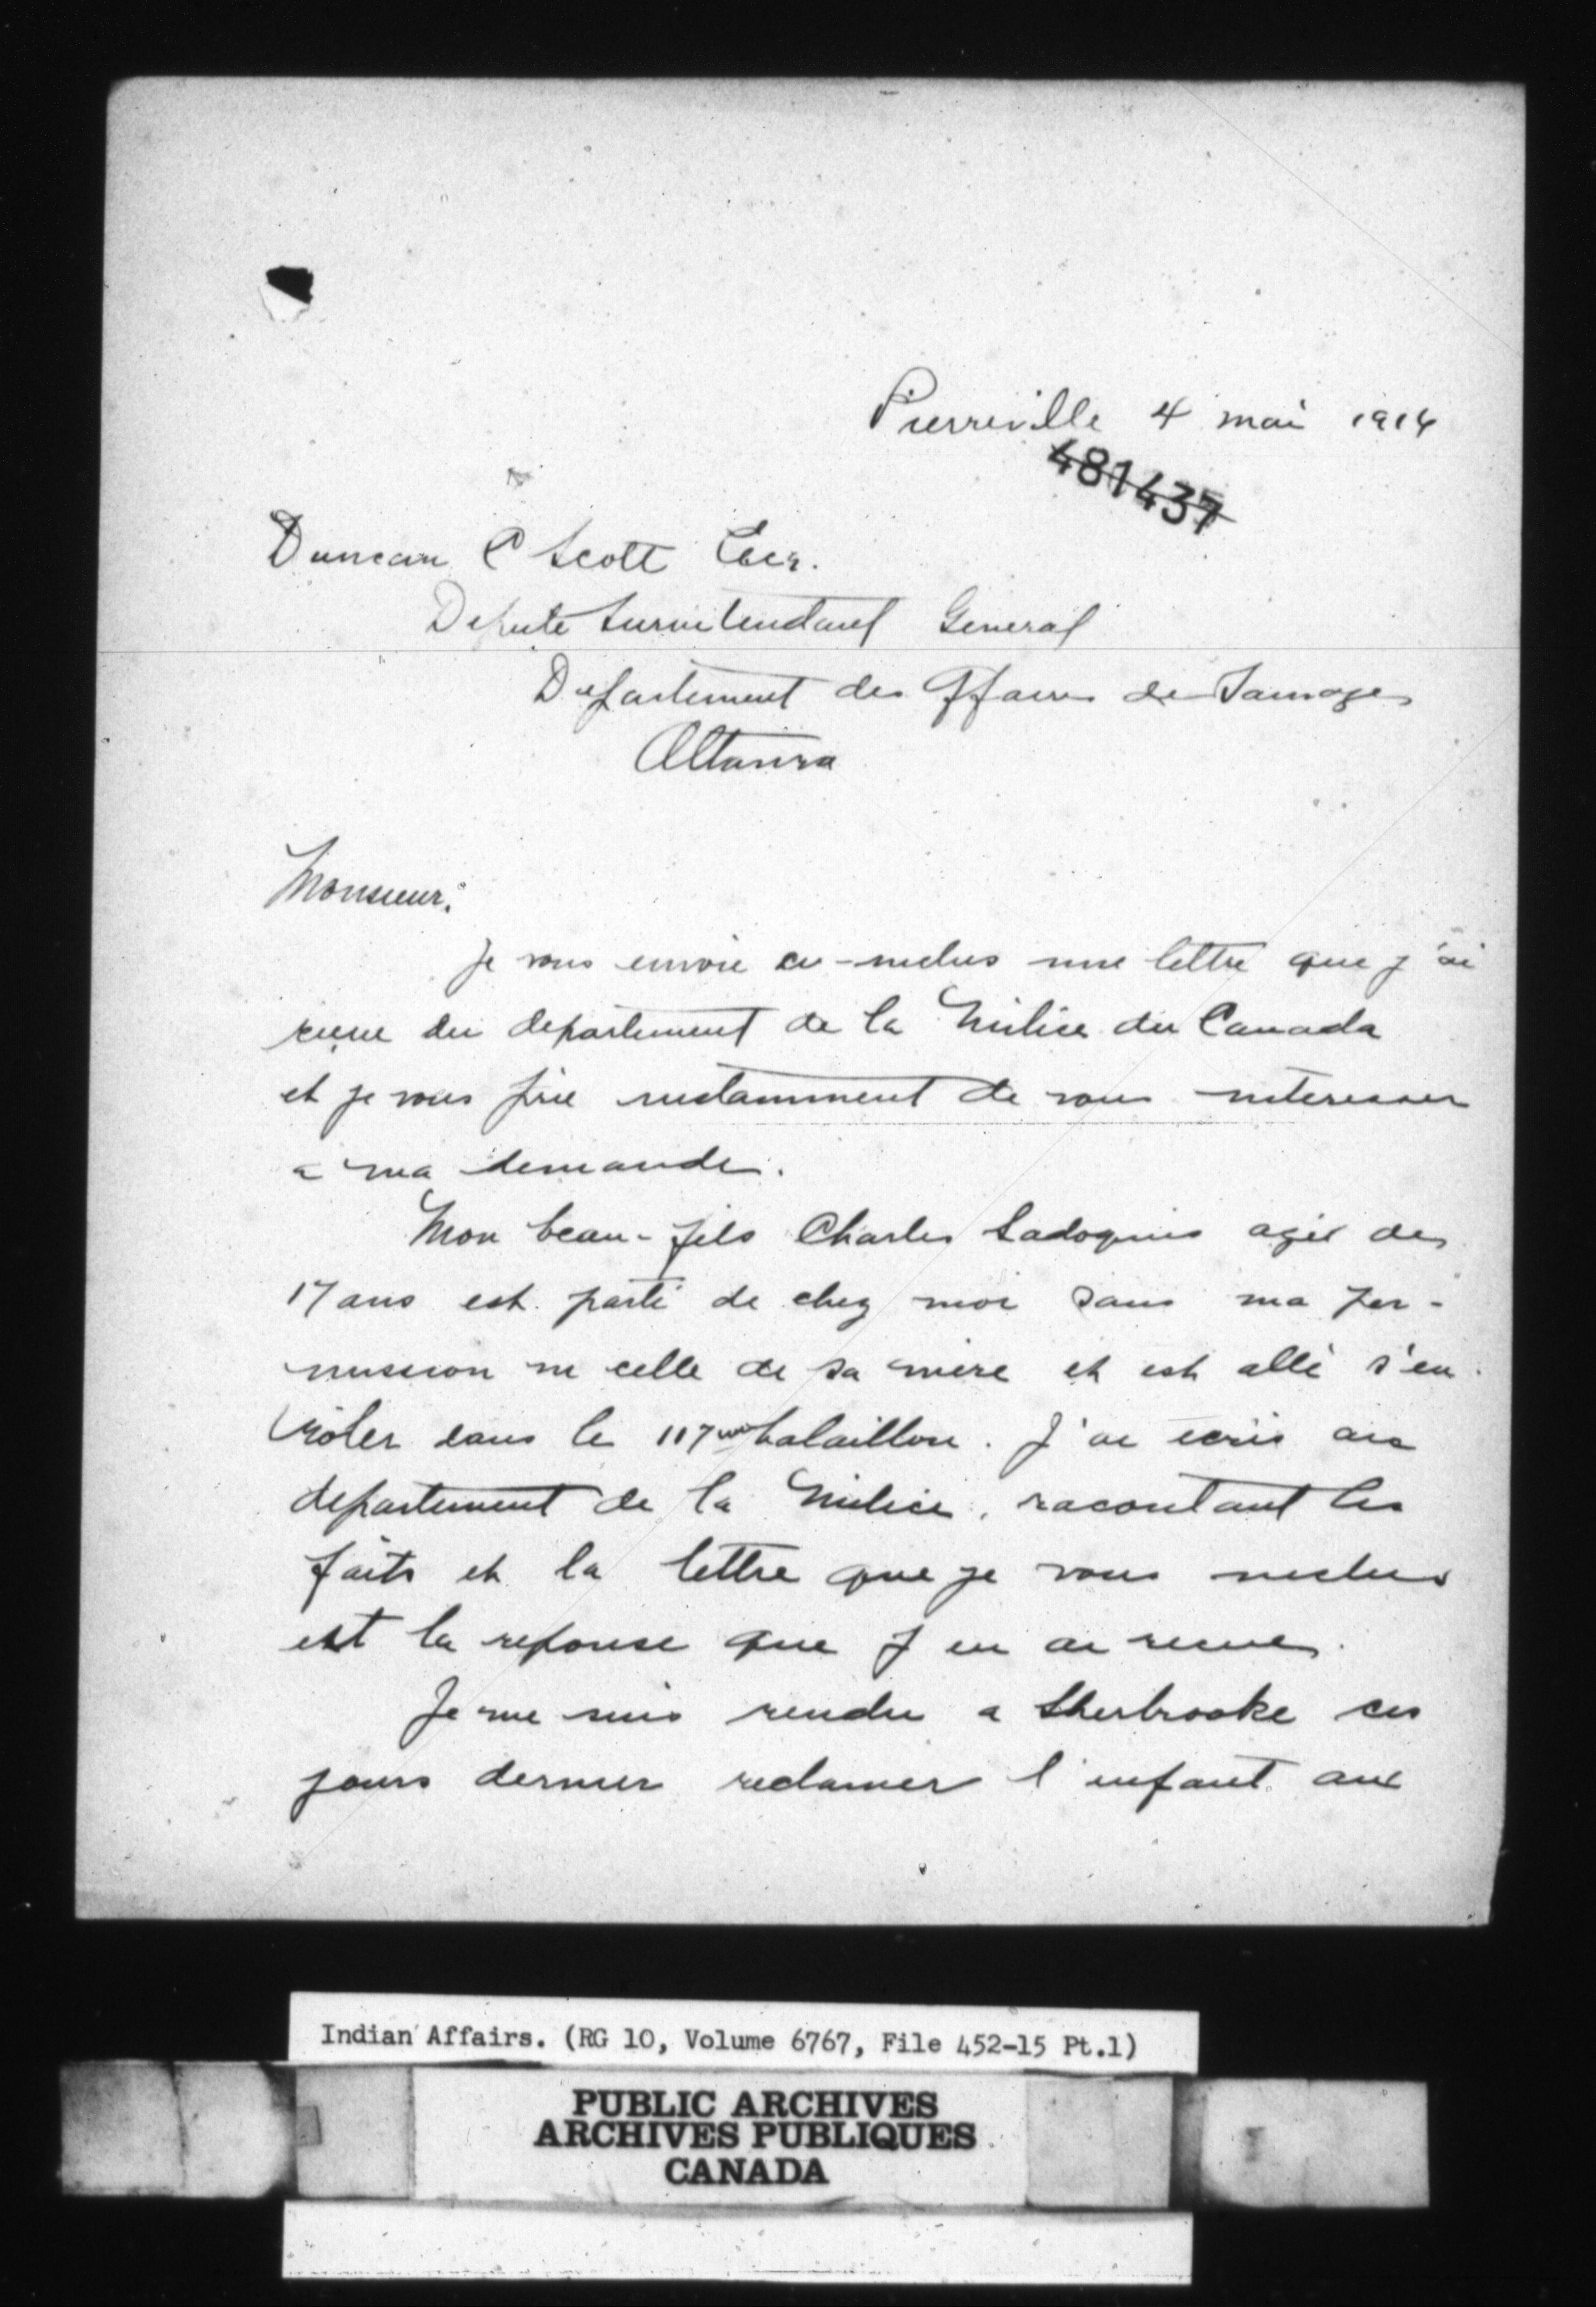 Pierreville 4 mai 1916
481437
Duncan C Scott Ecr.
Depute Surintendant General
Departement des Affaires de Sauvages
Ottawa
Monsieur:
Je vous envoie ci-inclus une lettre que j'ai
reçue du departement de la Milice du Canada
et je vous prie instamment de vous interesser
a ma demande.
Mon beau-fils Charles Sadoques agé de
17 ans est parti de chez moi sans ma per-
mission ni celle de sa mère et est allé s'en
roler dans le 117me bataillon. J'ai ecris au
departement de la Milice, racontant les
faits et la lettre que je vous inclus
est la reponse que j'en ai reçue.
Je me suis rendu a Sherbrooke ces
jours dernier reclamer l'enfant aux
Indian Affairs. (RG 10, Volume 6767, File 452-15 Pt.1)
PUBLIC ARCHIVES
ARCHIVES PUBLIQUES
CANADA